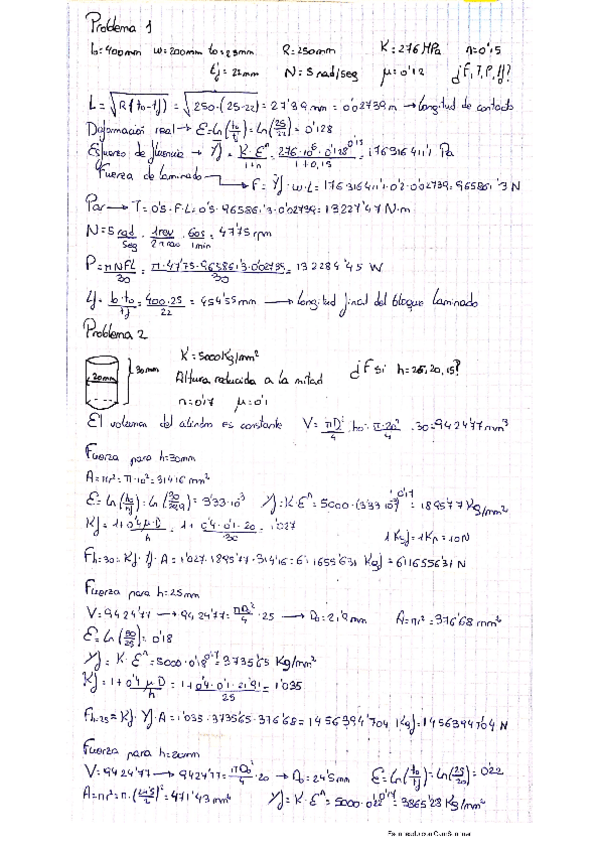 Problema 1
lo=400mm w=200mm to=25mm R=250mm K=276 MPa n=0'15
tf=22mm N=5rad/seg μ=0'12 ¿F,T,P,lf?
L=√R(to-tf) = √250·(25-22) = 27'39 mm = 0'02739 m → Longitud de contacto
Deformación real → Ɛ=Ln(to/tf)=Ln(25/22)=0'128
Esfuerzo de fluencia → Ȳf = K·Ɛ^n/1+n = 276·10^6·0'128^0'15/1+0,15 = 176316411'1 Pa
Fuerza de laminado → F=Ȳf·w·L=176316411'1·0'2·0'02739=965861'3 N
Par → T=0'5·F·L=0'5·965861'3·0'02739=13227'47 N·m
N=5 rad/seg · 1rev/2π rad · 60s/1min = 47'75 rpm
P=πNFL/30 = π·47'75·965861'3·0'02739/30 = 132284'45 W
Lf=lo·to/tf=400·25/22=454'55mm → Longitud final del bloque laminado
Problema 2
K=5000Kg/mm²
20mm 30mm Altura reducida a la mitad ¿F si h=25,20,15?
n=0'17 μ=0'1
El volumen del cilindro es constante V=πD²/4 ho=π·20²/4·30=9424'77mm³
Fuerza para h=30mm
A=πr²=π·10²=314'16 mm²
Ɛ=Ln(ho/hf)=Ln(30/29'9)=3'33·10^3 Yf=K·Ɛ^n=5000·(3'33·10^3)^0'17=1895'77 Kg/mm²
Kf=1+0'4μD/h=1+0'4·0'1·20/30=1'027 1Kgf=1Kp=10N
Fh=30=Kf·Yf·A=1'027·1895'77·314'16=611655'631 Kgf=6116556'31 N
Fuerza para h=25mm
V=9424'77 → 9424'77=πD²/4·25 → D=21'9mm A=πr²=376'68 mm²
Ɛ=Ln(30/25)=0'18
Yf=K·Ɛ^n=5000·0'18^0'17=3735'65 Kg/mm²
Kf=1+0'4μD/h=1+0'4·0'1·21'91/25=1'035
Fh=25=Kf·Yf·A=1'035·3735'65·376'68=1456394'704 Kgf=14563947'04 N
Fuerza para h=20mm
V=9424'77 → 9424'77=πD²/4·20 → D=24'5mm Ɛ=Ln(to/tf)=Ln(25/20)=0'22
A=πr²=π·(24'5/2)²=471'43mm² Yf=K·Ɛ^n=5000·0'22^0'17=3865'28 Kg/mm²